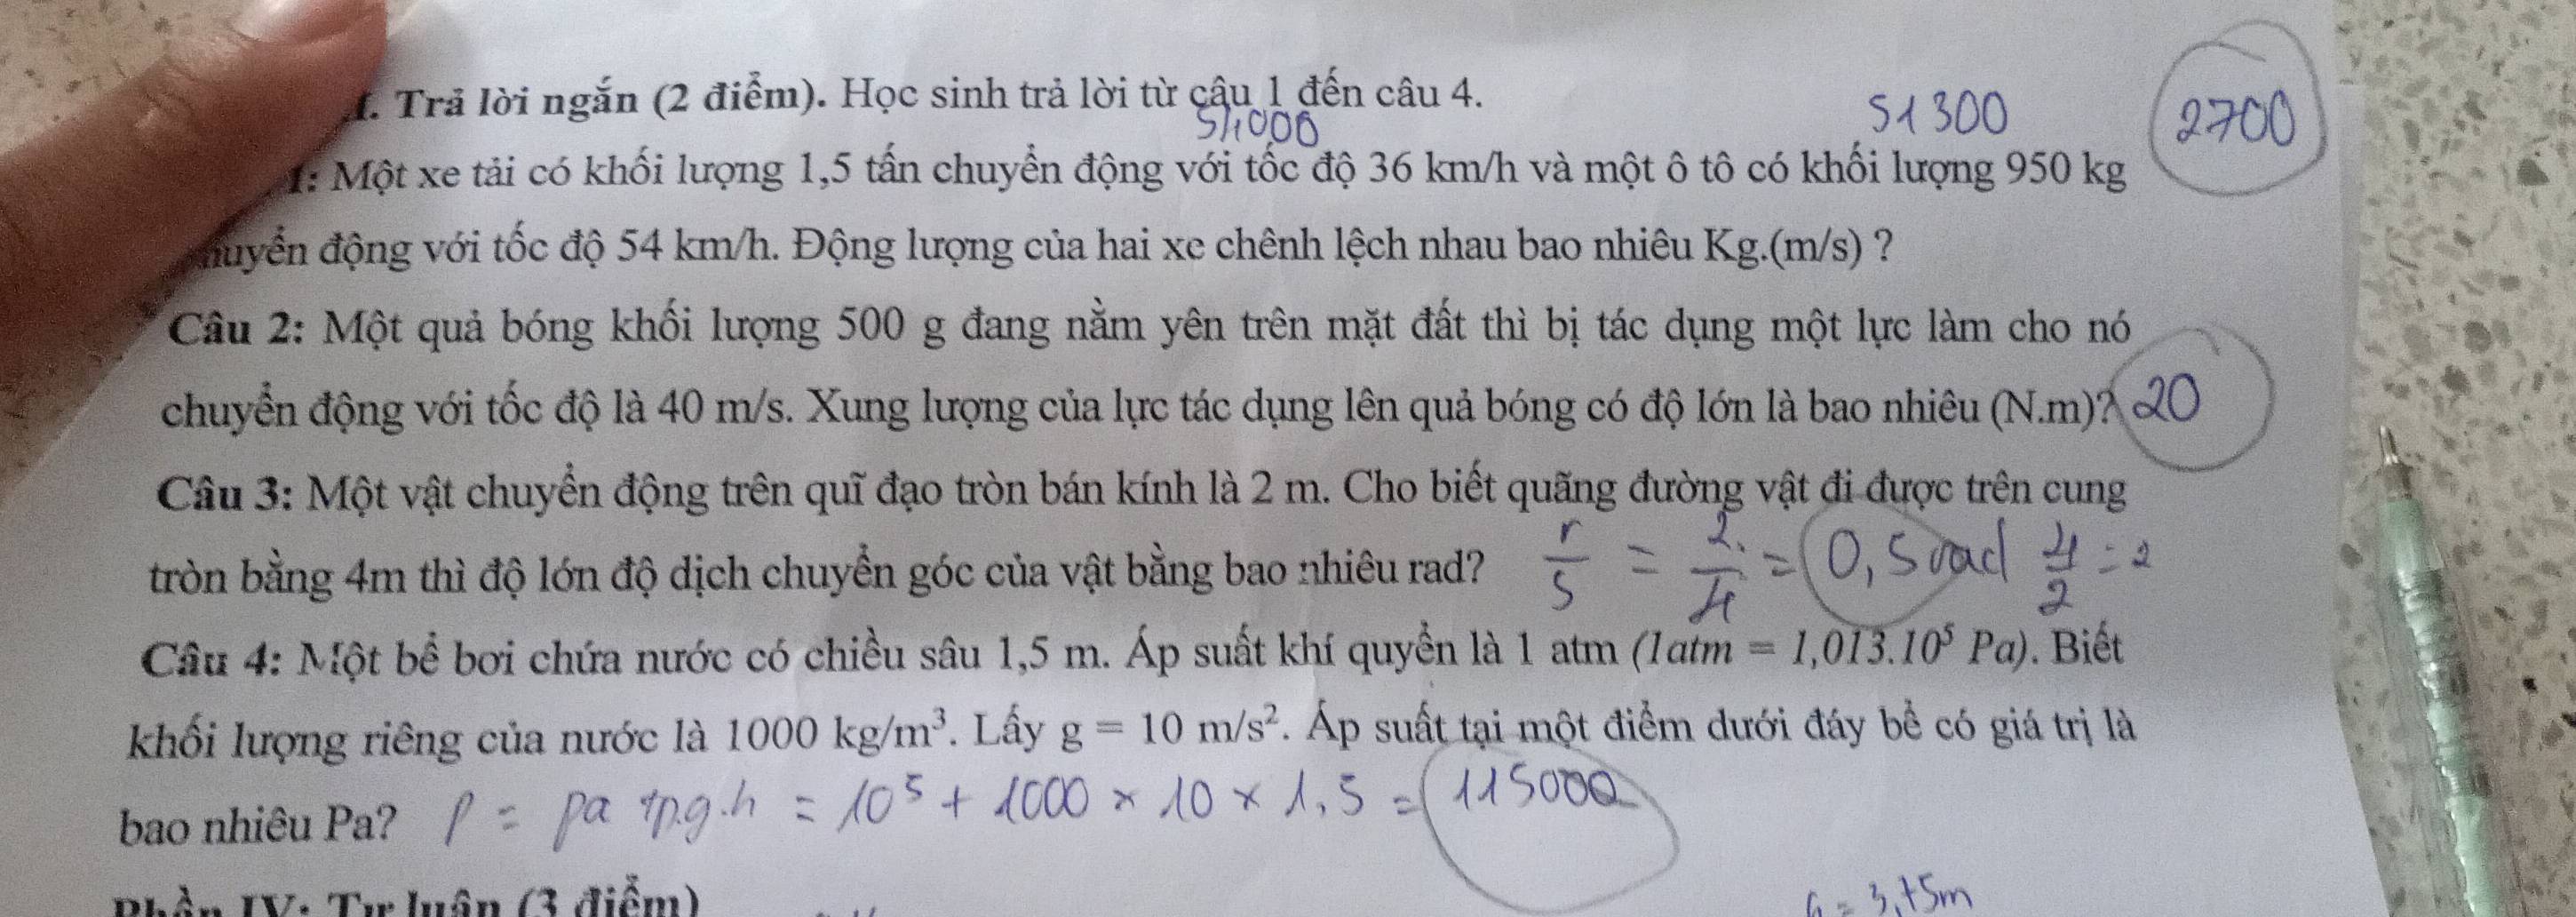 . Trả lời ngắn (2 điểm). Học sinh trả lời từ câu 1 đến câu 4.
54000 51300 2700
1: Một xe tải có khối lượng 1,5 tấn chuyển động với tốc độ 36 km/h và một ô tô có khối lượng 950 kg
huyển động với tốc độ 54 km/h. Động lượng của hai xe chênh lệch nhau bao nhiêu Kg.(m/s) ?
Câu 2: Một quả bóng khối lượng 500 g đang nằm yên trên mặt đất thì bị tác dụng một lực làm cho nó
chuyển động với tốc độ là 40 m/s. Xung lượng của lực tác dụng lên quả bóng có độ lớn là bao nhiêu (N.m)? 20
Câu 3: Một vật chuyển động trên quĩ đạo tròn bán kính là 2 m. Cho biết quãng đường vật đi được trên cung
tròn bằng 4m thì độ lớn độ dịch chuyển góc của vật bằng bao nhiêu rad? r/s = 2/4 = 0,5 rad 4/2 = 2
Câu 4: Một bể bơi chứa nước có chiều sâu 1,5 m. Áp suất khí quyển là 1 atm (1atm = 1,013.10⁵ Pa). Biết
khối lượng riêng của nước là 1000 kg/m³. Lấy g = 10 m/s². Áp suất tại một điểm dưới đáy bể có giá trị là
bao nhiêu Pa? p = pa +p.g.h = 10⁵ + 1000 × 10 × 1,5 = 115000
Phần IV: Tự luận (3 điểm)